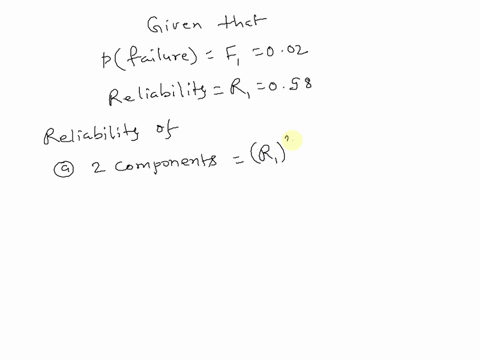 Given that
p(failure) = F₁ = 0.02
Reliability = R₁ = 0.98
Reliability of
ⓐ 2 components = (R₁)²